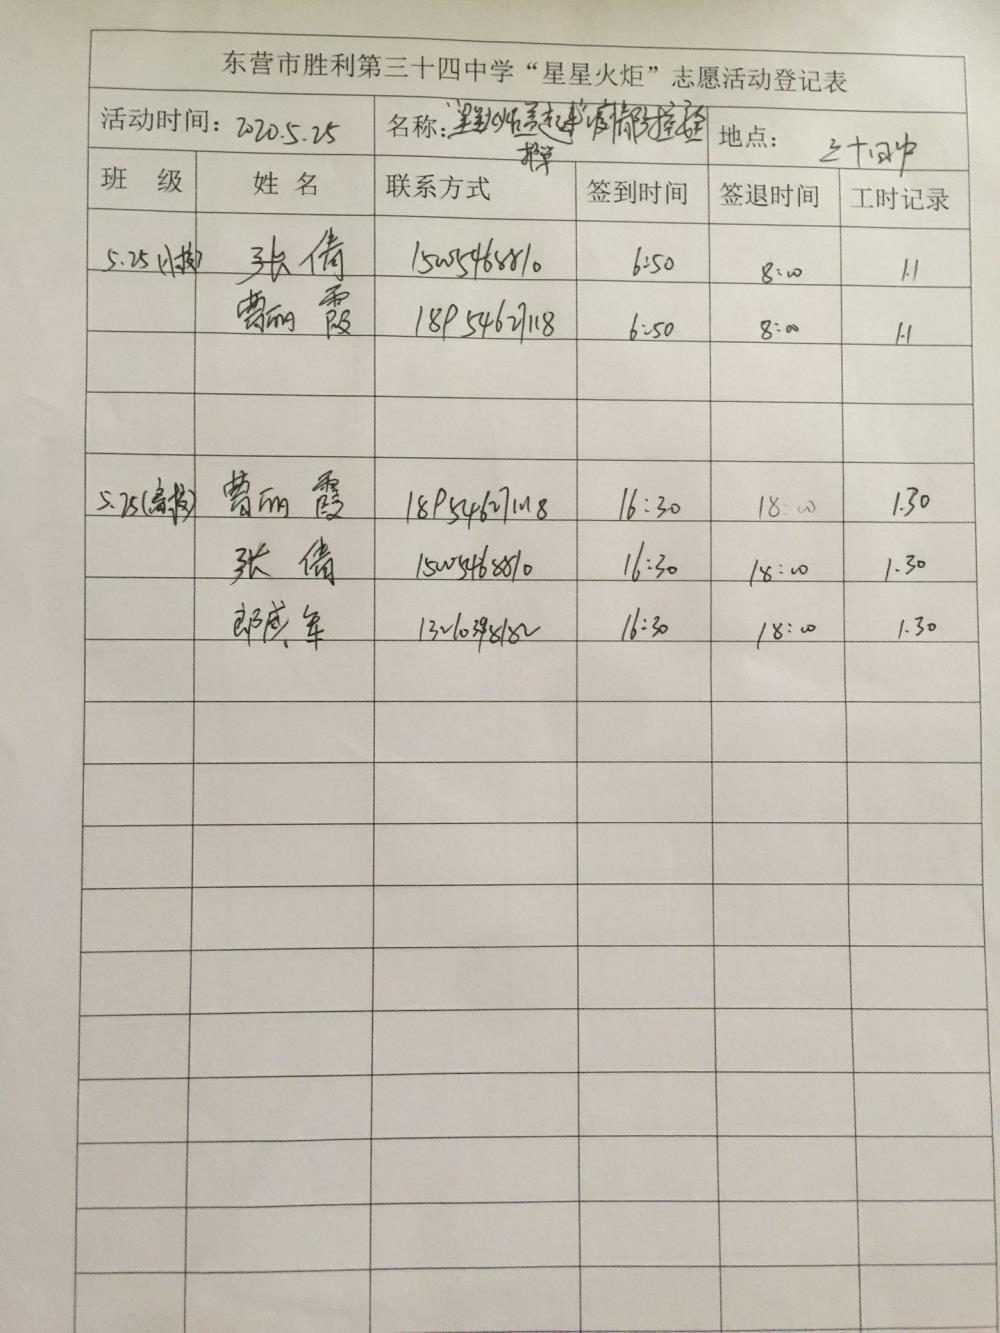 东营市胜利第三十四中学“星星火炬”志愿活动登记表
活动时间：2020.5.25 名称： 地点：三十四中
班 级 姓 名 联系方式 签到时间 签退时间 工时记录
5.25 张倩 15005468810 6:50 8:00 1.1
曹丽霞 18954627118 6:50 8:00 1.1
5.25 曹丽霞 18954627118 16:30 18:00 1.30
张倩 15005468810 16:30 18:00 1.30
军 16:30 18:00 1.30